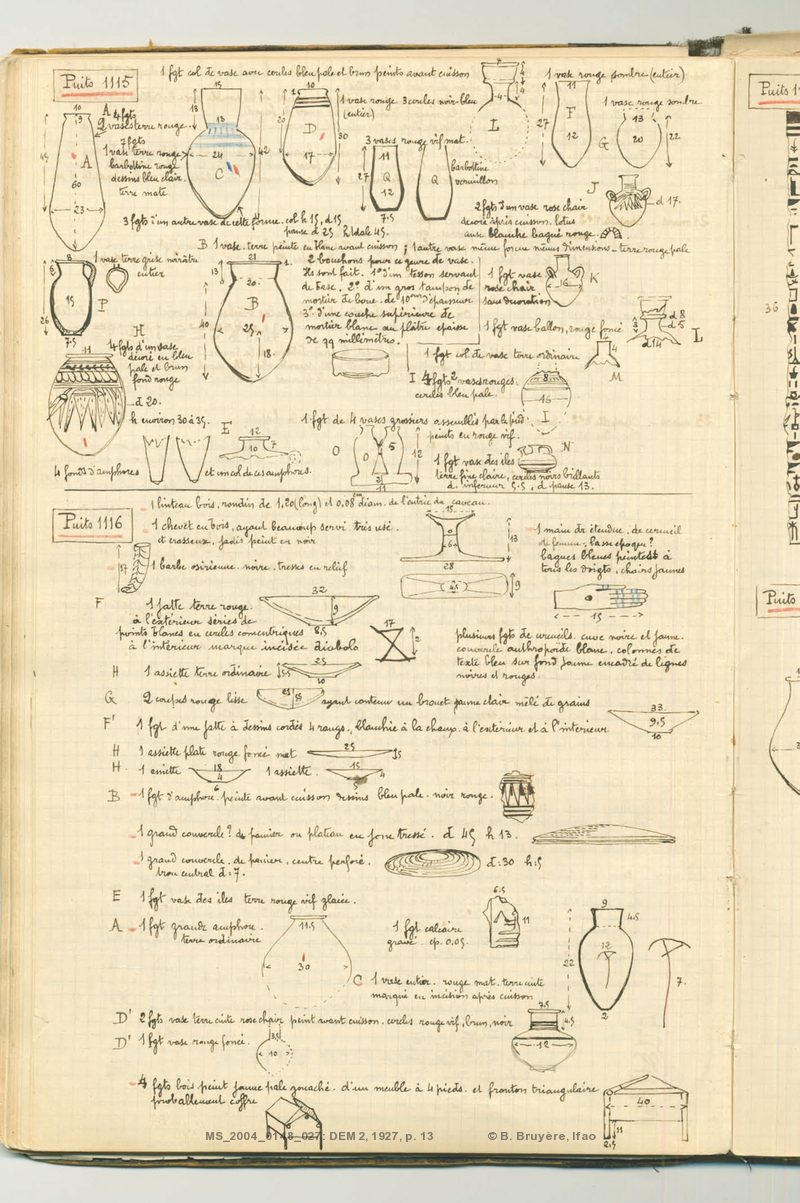 Puits 1115
1 fgt col de vase avec cercles bleu pale et brun peints avant cuisson
1 vase rouge sombre (entier)
1 vase rouge sombre
A 4 fgts
2 vases terre rouge
7 fgts
1 vase terre rouge
barbotine rouge
dessins bleu clair.
terre mate
1 vase rouge 3 cercles noir-bleu
(entier)
3 vases rouge vif mat.
barbotine
vermillon
2 fgts d'un vase rose chair
décoré après cuisson. lotus
anse blanche bagué rouge.
3 fgts d'un autre vase de cette forme. col h 15, d 15
panse d 25 h totale 45.
B 1 vase. terre peinte en blanc avant cuisson 1 autre vase même forme mêmes dimensions - terre rouge pale
1 vase terre grise noirâtre
entier
2 bouchons pour ce genre de vase.
Ils sont fait. 1° d'un tesson servant
de base. 2° d'un gros tampon de
mortier de boue. de 10 cm d'épaisseur
3° d'une couche supérieure de
mortier blanc au plâtre épaisse
de 99 millimètres.
1 fgt vase
rose chair
sans decoration
1 fgt vase ballon, rouge foncé
1 fgt col de vase terre ordinaire
H
4 fgts d'un vase
décoré en bleu
pale et brun
fond rouge
d 20.
h environ 30 à 35.
I 4 fgts 2 vases rouges.
cercles bleu pale.
1 fgt de 4 vases grossiers assemblés par le pied.
peints en rouge vif.
1 fgt vase des iles
terre fine claire, cercles noirs brillants
d. inferieur 5.5, d. panse 13.
4 fonds d'amphores
et un col de ces amphores.
1 linteau bois, rondin de 1,20 (long) et 0,08 diam. de l'entrée du caveau.
Puits 1116
1 chevet en bois, ayant beaucoup servi très usé.
et crasseux, jadis peint en noir
1 barbe osirienne. noire. tresses en relief
1 main dr. étendue. de cercueil
de femme. basse epoque?
bagues bleues peintes à
tous les doigts, chairs jaunes
F 1 jatte terre rouge.
à l'extérieur séries de
points blancs en cercles concentriques
à l'intérieur marque incisée diabolo
plusieurs fgts de cercueils. cuve noire et jaune.
couvercle anthropoïde blanc, colonnes de
texte bleu sur fond jaune encadré de lignes
noires et rouges.
H 1 assiette terre ordinaire
G 2 coupes rouge lisse ayant contenu un brouet jaune clair mêlé de grains
F' 1 fgt d'une jatte à dessins cordés 4 rangs, blanchie à la chaux. à l'extérieur et à l'intérieur
H 1 assiette plate rouge foncé mat
H. 1 assiette 1 assiette.
B 1 fgt d'amphore peinte avant cuisson dessins bleu pale. noir rouge.
1 grand couvercle? de panier ou plateau en jonc tressé. d 45 h 13.
1 grand couvercle. de panier, centre perforé. d: 30 h: 5
trou central d: 7.
E 1 fgt vase des iles terre rouge vif glacée.
A 1 fgt grande amphore.
terre ordinaire
1 fgt calcaire
gravé. ep. 0.05.
C 1 vase entier. rouge mat. terre cuite
marqué en incision après cuisson
D' 2 fgts vase terre cuite rose chair peint avant cuisson. cercles rouge vif, brun, noir
D' 1 fgt vase rouge foncé.
4 fgts bois peint jaune pale gouaché. d'un meuble à 4 pieds. et fronton triangulaire
probablement coffre
MS_2004_0148_027: DEM 2, 1927, p. 13 © B. Bruyère, Ifao
Puits
36
Puits